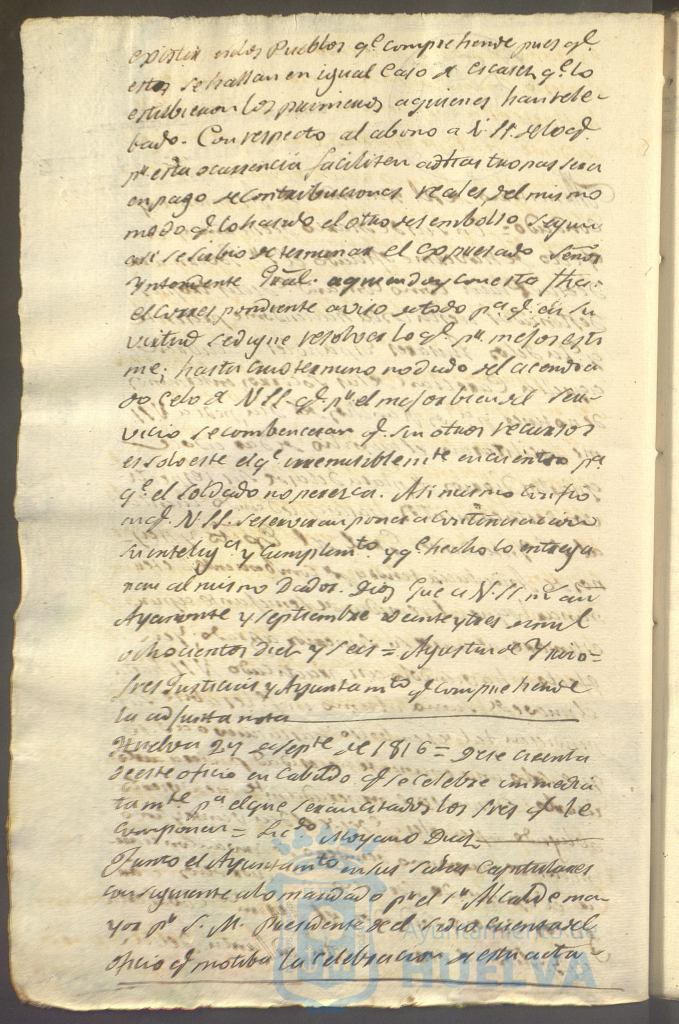 existir en los Pueblos q.e comprehende pues q.e
estos se hallan en igual caso de escases q.e lo
estubieron los primeros a quienes han rele-
bado. Con respecto al abono a V. SS. de lo q.e
p.r esta ocurrencia faciliten a dhas tropas sera
en pago de contribuciones reales del mismo
modo q.e lo ha sido el otro desembolso segun
asi se sirbio determinar el expresado Señor
Yntendente Gral. aguardo y con esta fha.
el correspondiente aviso de todo p.a q.e en su
virtud se digne resolver lo q.e p.r mejor esti
me; hasta cuio termino no dudo del acredita
do celo de V. SS. q.e p.r el mejor bien del ser-
vicio se combenceran q.e sin otros recursos
es solo este el q.e irremisiblem.te encuentro p.a
q.e el soldado no peresca. Asi mismo confio
en q.e V. SS. se serviran poner a continuacion
su intelig.a y cumplim.to y q.e hecho lo entrega
ran al mismo Dador. Dios gue a V. SS. m.s an.s
Ayamonte y septiembre veinte y tres de mil
ochocientos diez y seis = Agustin de
Sres Justicias y Ayuntam.to q.e comprehende
la adjunta nota
Huelva 27 de Sept.e de 1816 = Dese cuenta
de este oficio en Cabildo q.e se celebre inmedia
tam.te p.a el que seran citados los Sres q.e le
componen = Lic.do Moyano Diaz
Junto el Ayuntam.to en sus Salas Capitulares
consiguiente a lo mandado p.r el S.r Alcalde ma-
yor p.r S. M. Presidente de el se dio cuenta del
oficio q.e motiba la celebracion de esta acta
Ayuntamiento de
HUELVA